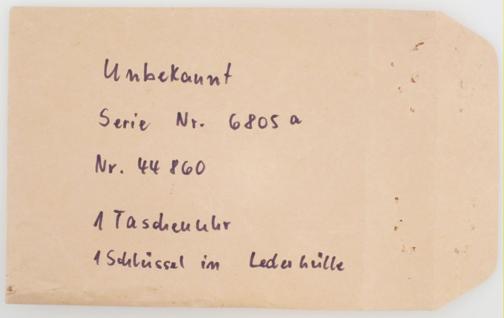 Unbekannt
Serie Nr. 6805 a
Nr. 44 860
1 Taschenuhr
1 Schlüssel in Lederhülle